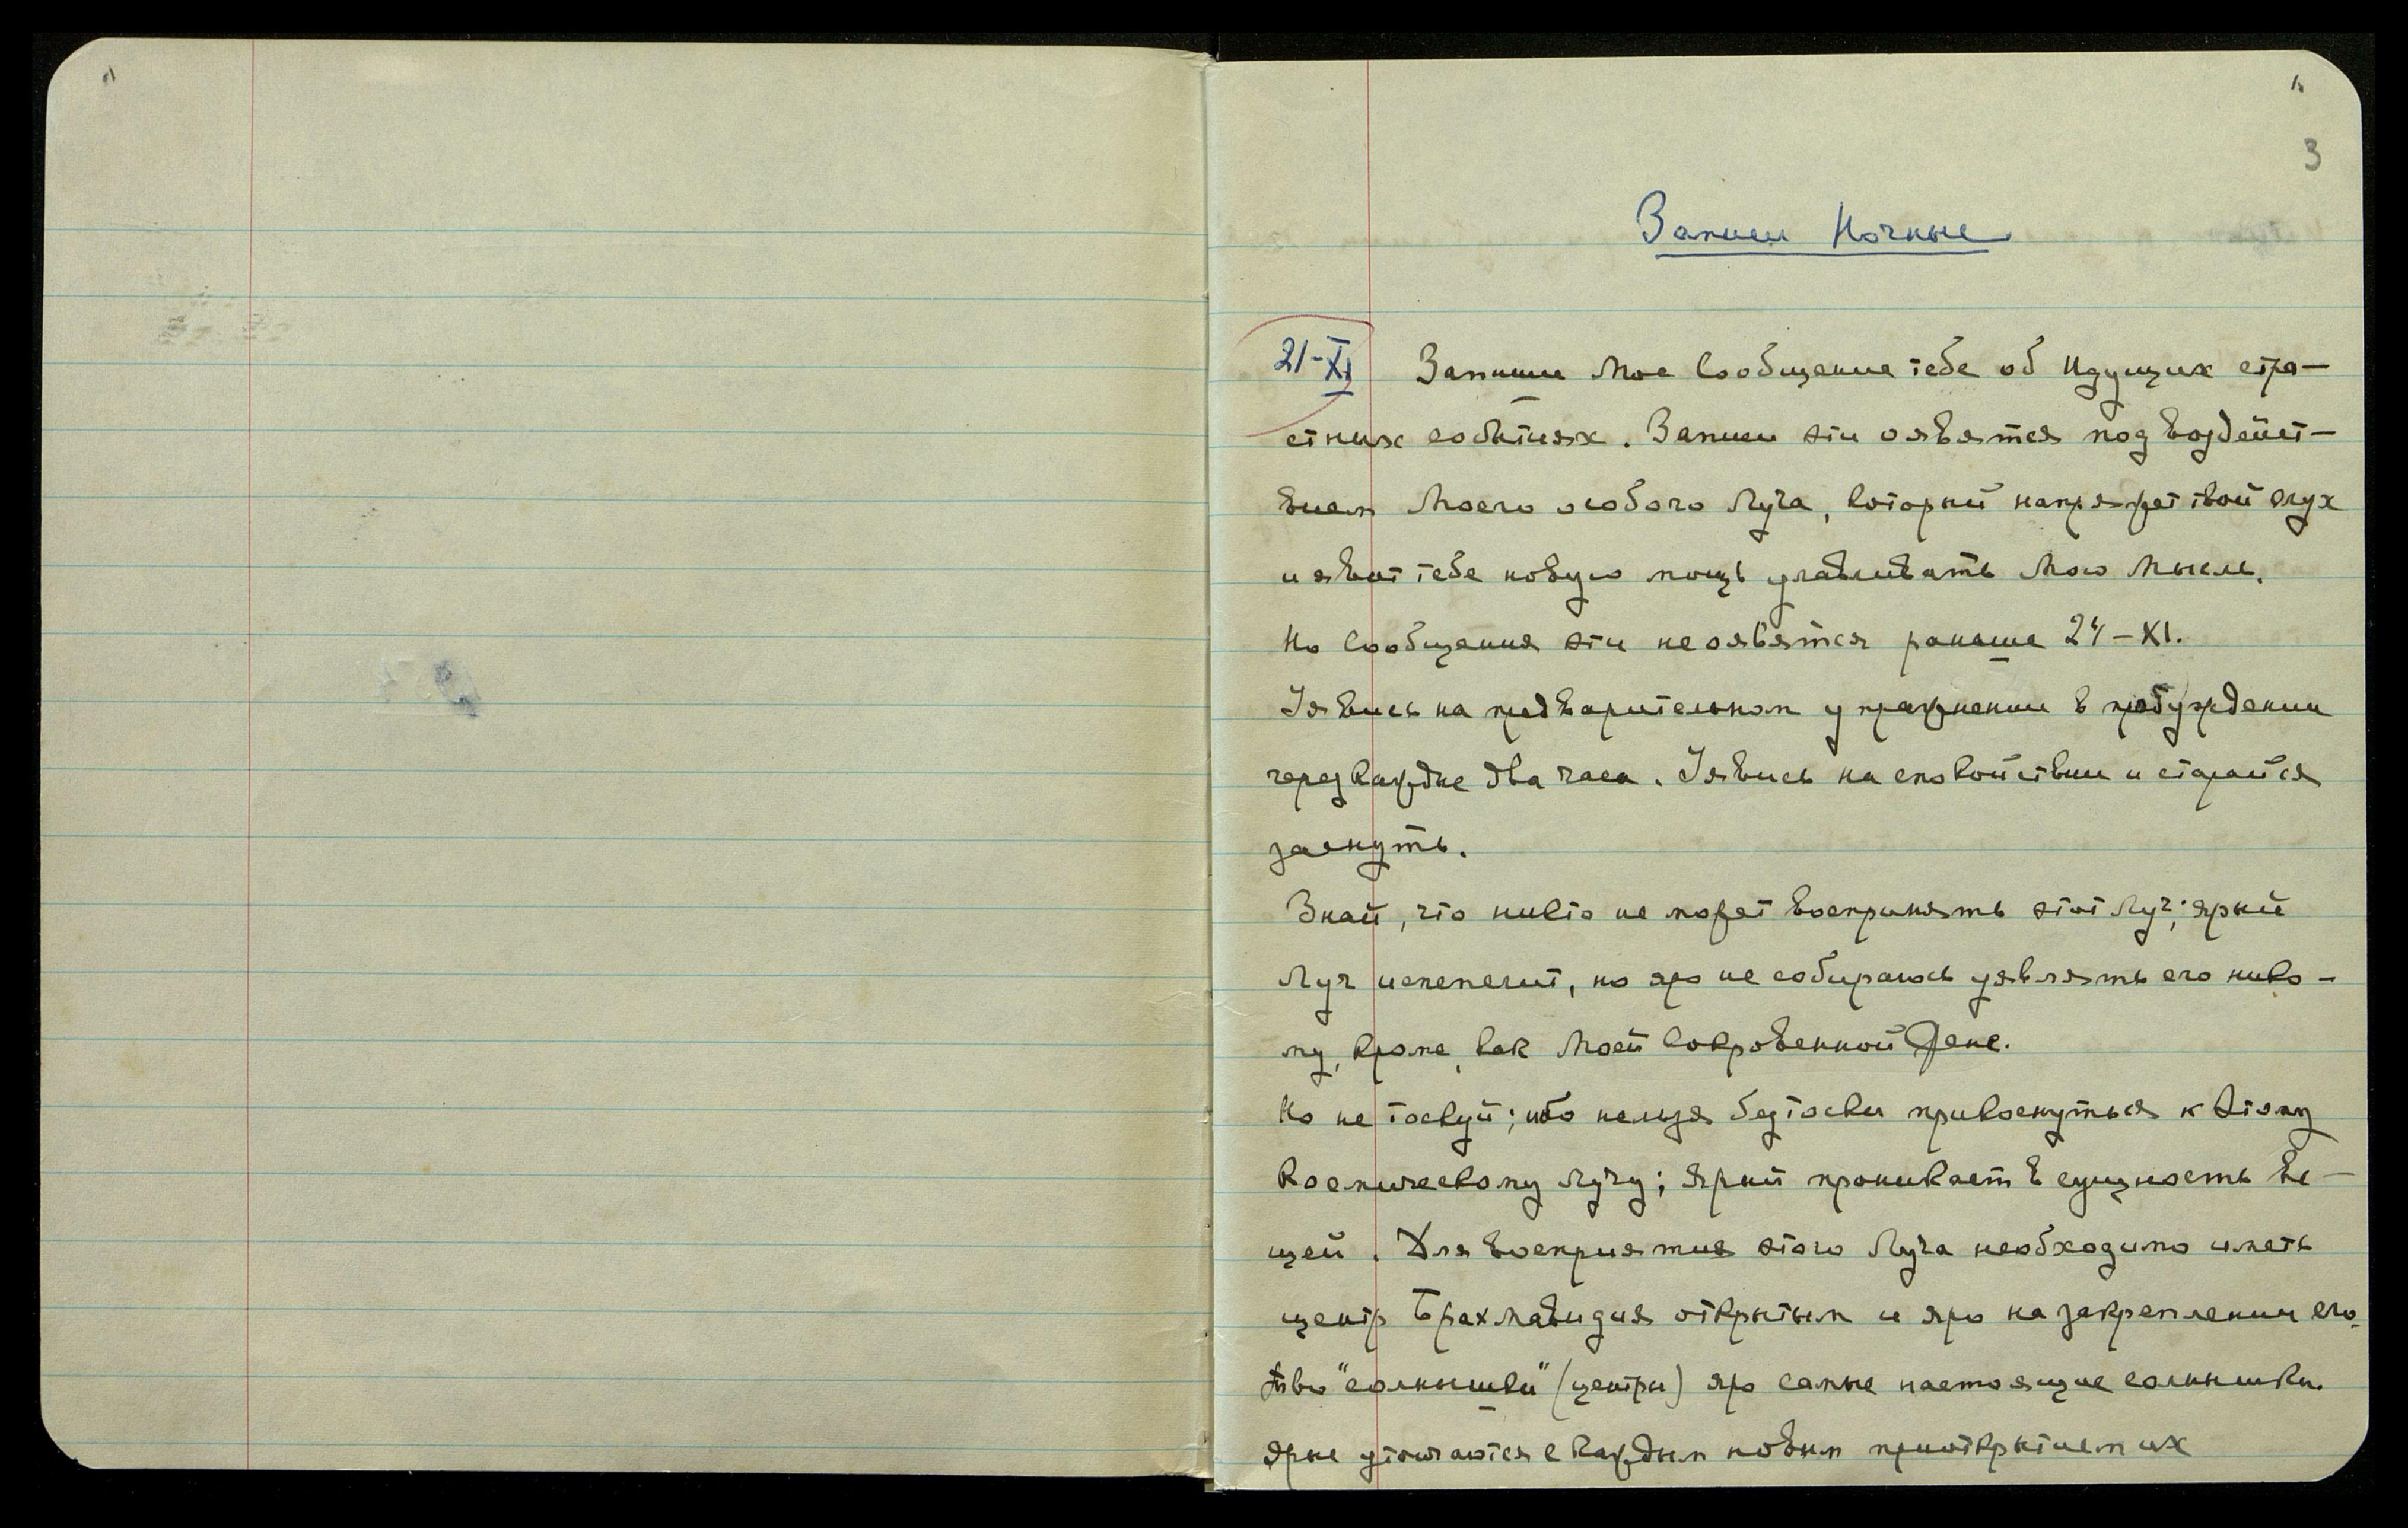 3
Записи Ночные
21-XI Запиши Мое Сообщение тебе об Идущих стра-
стных событиях. Записи эти оявятся под воздейст-
вием Моего особого Луча, который напряжет твой слух
и явит тебе новую мощь улавливать Мою Мысль.
Но Сообщения эти не оявятся раньше 24-XI.
Уявись на предварительном упражнении в пробуждении
через каждые два часа. Уявись на спокойствии и старайся
заснуть.
Знай, что никто не может воспринять этот Луч; ярый
Луч испепелит, но яро не собираюсь уявлять его нико-
му, кроме, как Моей Сокровенной Жене.
Но не тоскуй; ибо нельзя без тоски прикоснуться к Этому
Космическому Лучу; Ярый проникает в сущность ве-
щей. Для восприятия этого Луча необходимо иметь
центр Брахмавидия открытым и яро на закреплении его.
Твои "солнышки" (центры) яро самые настоящие солнышки.
Ярые утончаются с каждым новым приоткрытием их